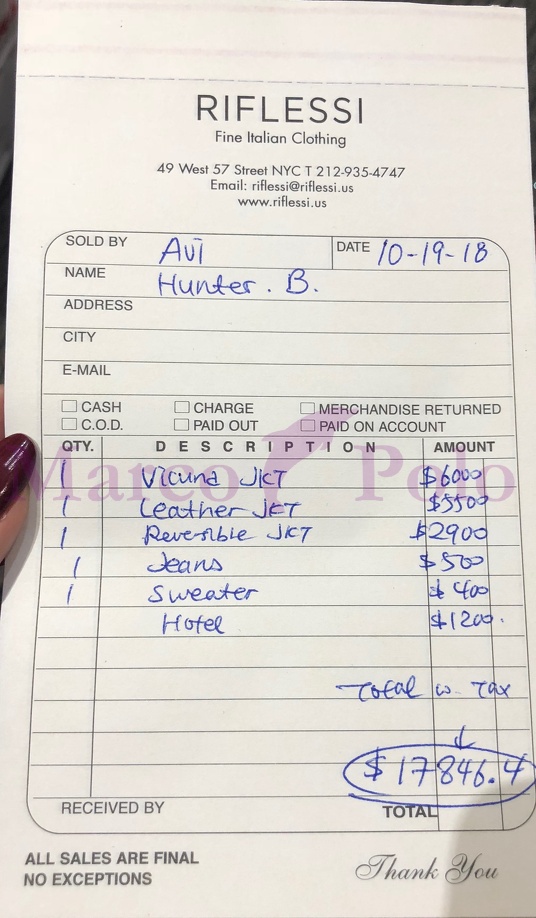 RIFLESSI
Fine Italian Clothing
49 West 57 Street NYC T 212-935-4747
Email: riflessi@riflessi.us
www.riflessi.us
SOLD BY Avi DATE 10-19-18
NAME Hunter. B.
ADDRESS
CITY
E-MAIL
CASH CHARGE MERCHANDISE RETURNED
C.O.D. PAID OUT PAID ON ACCOUNT
QTY. DESCRIPTION AMOUNT
Marco Polo
1 Vicuna JKT $6000
1 Leather JKT $5500
1 Reversible JKT $2900
1 Jeans $500
1 Sweater $400
Hotel $1200.
Total w. Tax
$17846.4
RECEIVED BY TOTAL
ALL SALES ARE FINAL
NO EXCEPTIONS
Thank You